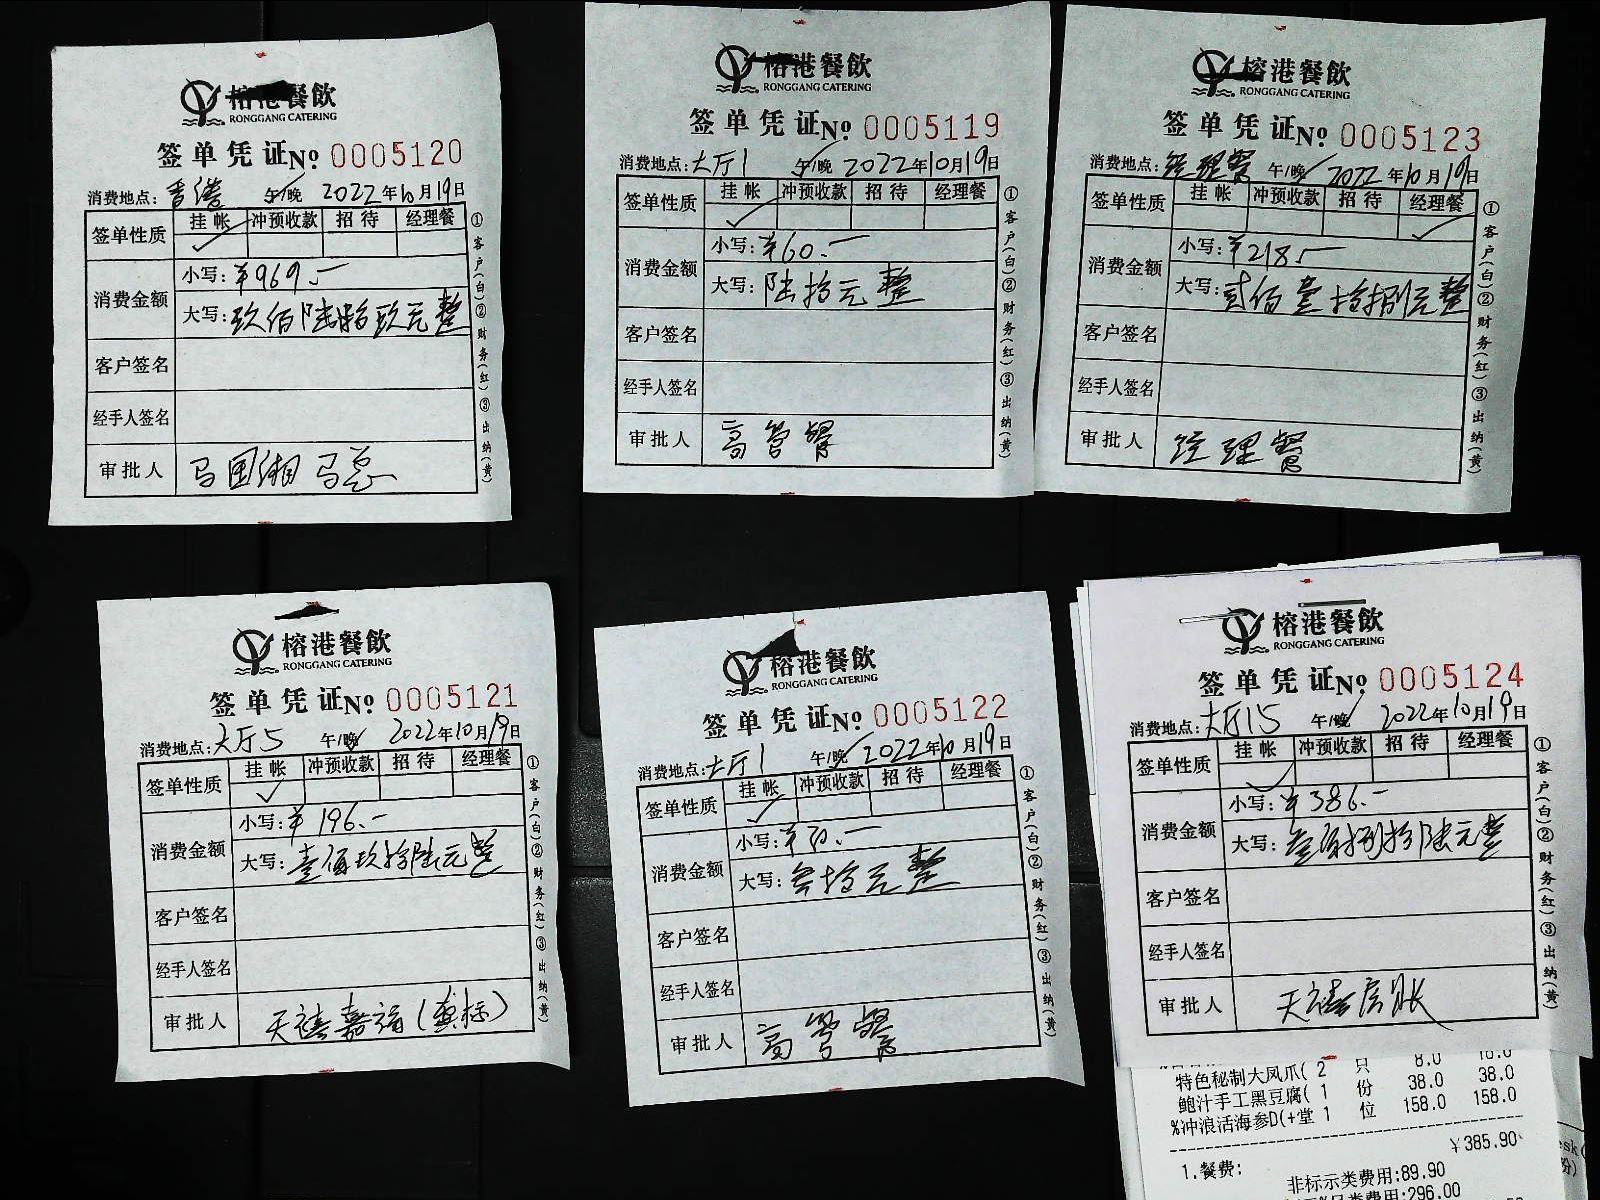 榕港餐飲
RONGGANG CATERING
签单凭证No 0005120
消费地点: 香港 午/晚 2022年10月19日
签单性质 挂帐 冲预收款 招待 经理餐
消费金额 小写: ¥969.-
大写: 玖佰陆拾玖元整
客户签名
经手人签名
审批人 马国湘 马总
①客户(白)②财务(红)③出纳(黄)
榕港餐飲
RONGGANG CATERING
签单凭证No 0005119
消费地点: 大厅1 午/晚 2022年10月19日
签单性质 挂帐 冲预收款 招待 经理餐
消费金额 小写: ¥60.-
大写: 陆拾元整
客户签名
经手人签名
审批人 高管餐
①客户(白)②财务(红)③出纳(黄)
榕港餐飲
RONGGANG CATERING
签单凭证No 0005123
消费地点: 经理餐 午/晚 2022年10月19日
签单性质 挂帐 冲预收款 招待 经理餐
消费金额 小写: ¥218.-
大写: 贰佰壹拾捌元整
客户签名
经手人签名
审批人 经理餐
①客户(白)②财务(红)③出纳(黄)
榕港餐飲
RONGGANG CATERING
签单凭证No 0005121
消费地点: 大厅5 午/晚 2022年10月19日
签单性质 挂帐 冲预收款 招待 经理餐
消费金额 小写: ¥196.-
大写: 壹佰玖拾陆元整
客户签名
经手人签名
审批人 天禧嘉福(
①客户(白)②财务(红)③出纳(黄)
榕港餐飲
RONGGANG CATERING
签单凭证No 0005122
消费地点: 大厅1 午/晚 2022年10月19日
签单性质 挂帐 冲预收款 招待 经理餐
消费金额 小写: ¥30.-
大写: 叁拾元整
客户签名
经手人签名
审批人 高管餐
①客户(白)②财务(红)③出纳(黄)
榕港餐飲
RONGGANG CATERING
签单凭证No 0005124
消费地点: 大厅15 午/晚 2022年10月19日
签单性质 挂帐 冲预收款 招待 经理餐
消费金额 小写: ¥386.-
大写: 叁佰捌拾陆元整
客户签名
经手人签名
审批人 天禧房账
①客户(白)②财务(红)③出纳(黄)
只 8.0 16.0
特色秘制大凤爪( 2
鲍汁手工黑豆腐( 1 份 38.0 38.0
%冲浪活海参D(+堂 1 位 158.0 158.0
¥385.90
1.餐费:
非标示类费用:89.90
类费用:296.00